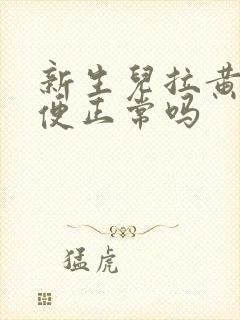 新生兒拉黄
便正常吗
猛虎